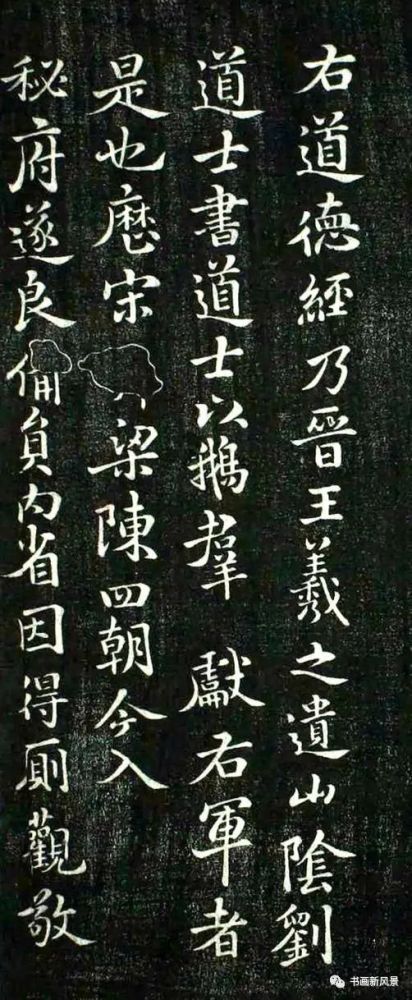 右道德經乃晉王羲之遺山陰劉
道士書道士以鵝羣獻右軍者
是也歷宋梁陳四朝今入
秘府遂良備員内省因得厠觀敬
书画新风景